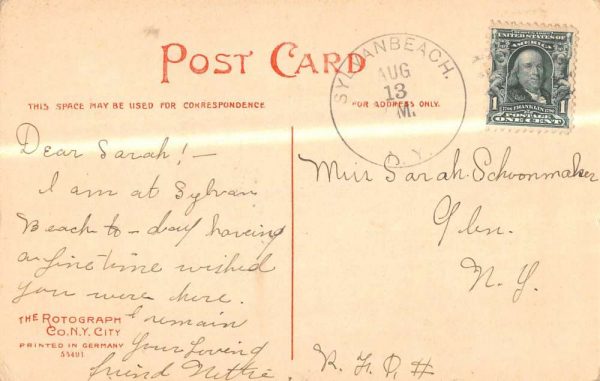 POST CARD
THIS SPACE MAY BE USED FOR CORRESPONDENCE
FOR ADDRESS ONLY.
SYLVAN BEACH.
AUG
13
M.
N.Y.
UNITED STATES OF
AMERICA
1 FRANKLIN 1
POSTAGE
ONE CENT
Dear Sarah! —
I am at Sylvan
Beach to-day having
a fine time wished
you were here.
I remain
Your Loving
friend Nettie.
THE ROTOGRAPH
CO. N.Y. CITY
PRINTED IN GERMANY
Miss Sarah Schoonmaker
Glen.
N.Y.
R.F.D. #